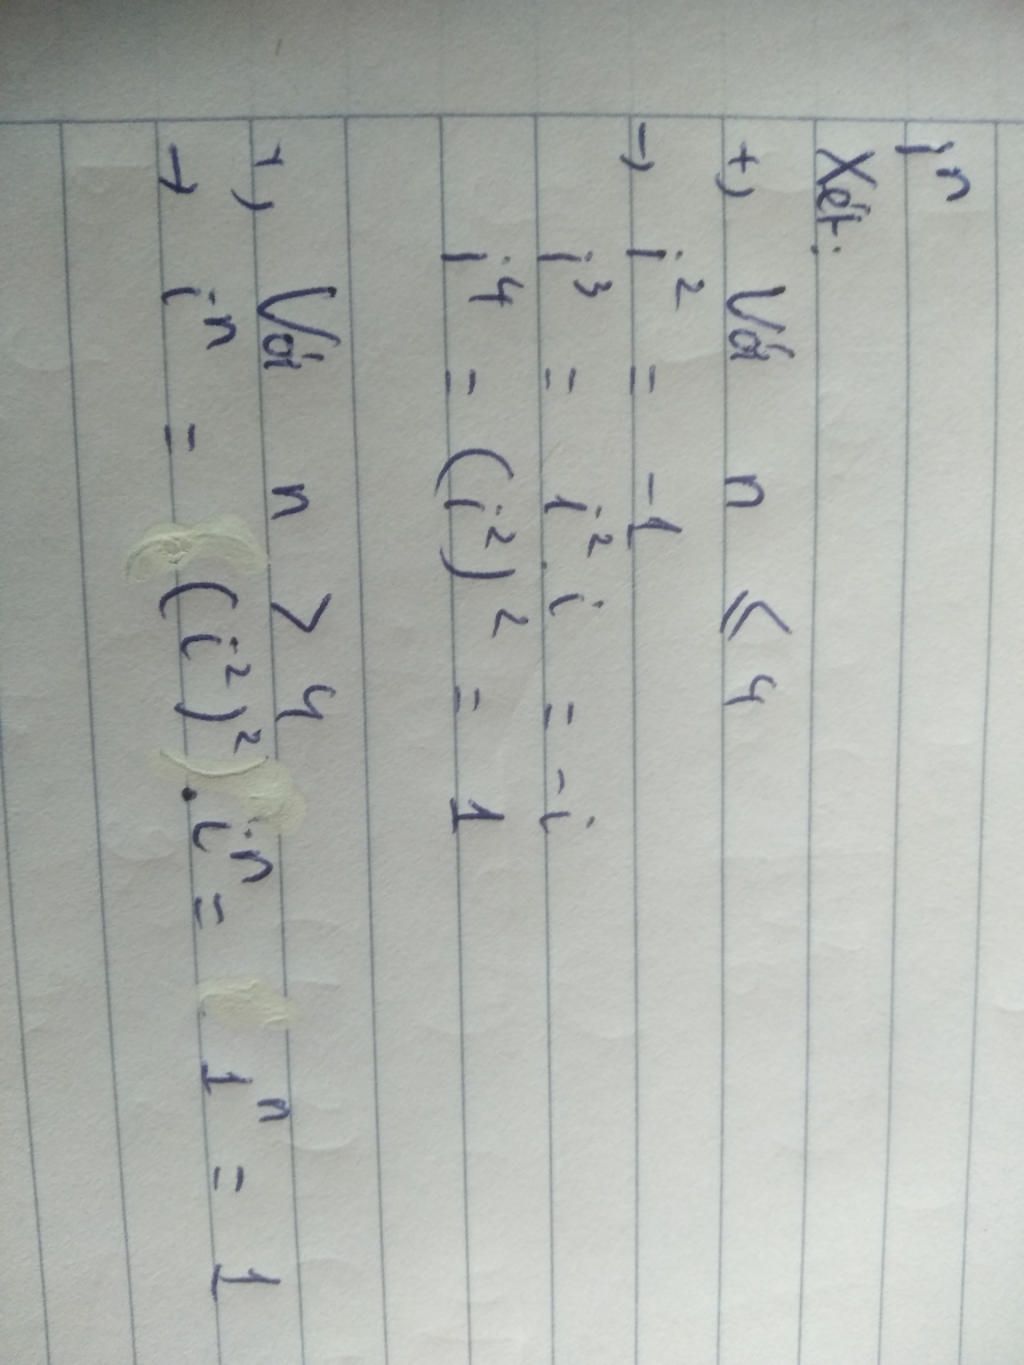 iⁿ
Xét:
+, Với n ⩽ 4
→ i² = -1
i³ = i².i = -i
i⁴ = (i²)² = 1
+, Với n > 4
→ iⁿ = (i²)² . iⁿ = 1ⁿ = 1